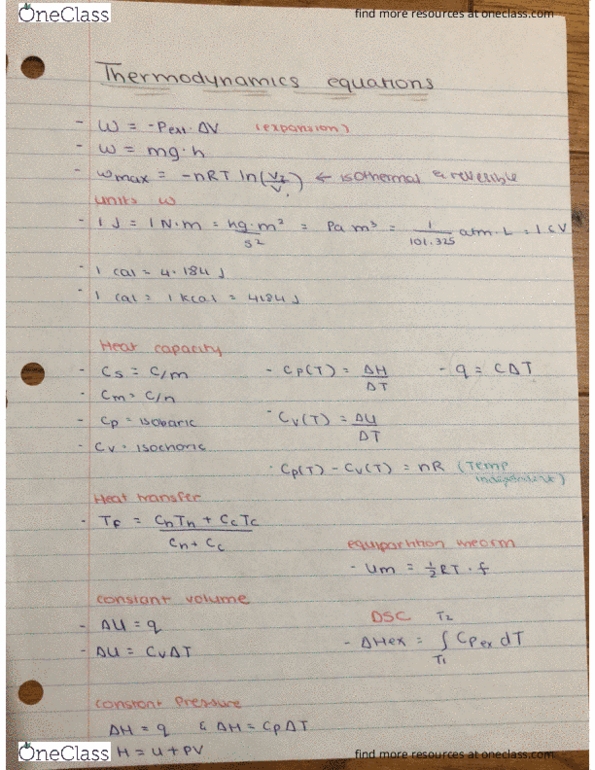 OneClass find more resources at oneclass.com
Thermodynamics equations
- w = -Pext · ΔV (expansion)
- w = mg·h
- wmax = -nRT ln(V2/V1) ← isothermal & reversible
units w
- 1 J = 1 N·m = kg·m²/s² = Pa m³ = 1/101.325 atm·L = 1 CV
- 1 cal = 4.184 J
- 1 Cal = 1 kcal = 4184 J
Heat capacity
- Cs = C/m - Cp(T) = ΔH/ΔT - q = CΔT
- Cm = C/n
- Cp = isobaric - Cv(T) = ΔU/ΔT
- Cv = isochoric
· Cp(T) - Cv(T) = nR (Temp independent)
Heat transfer
- Tf = ChTh + CcTc / Ch + Cc
equipartition theorm
- Um = ½RT · f
constant volume
- ΔU = q
- ΔU = CvΔT
DSC
- ΔHex = ∫T1T2 Cp ex dT
constant Pressure
ΔH = q & ΔH = CpΔT
H = U + PV
OneClass find more resources at oneclass.com